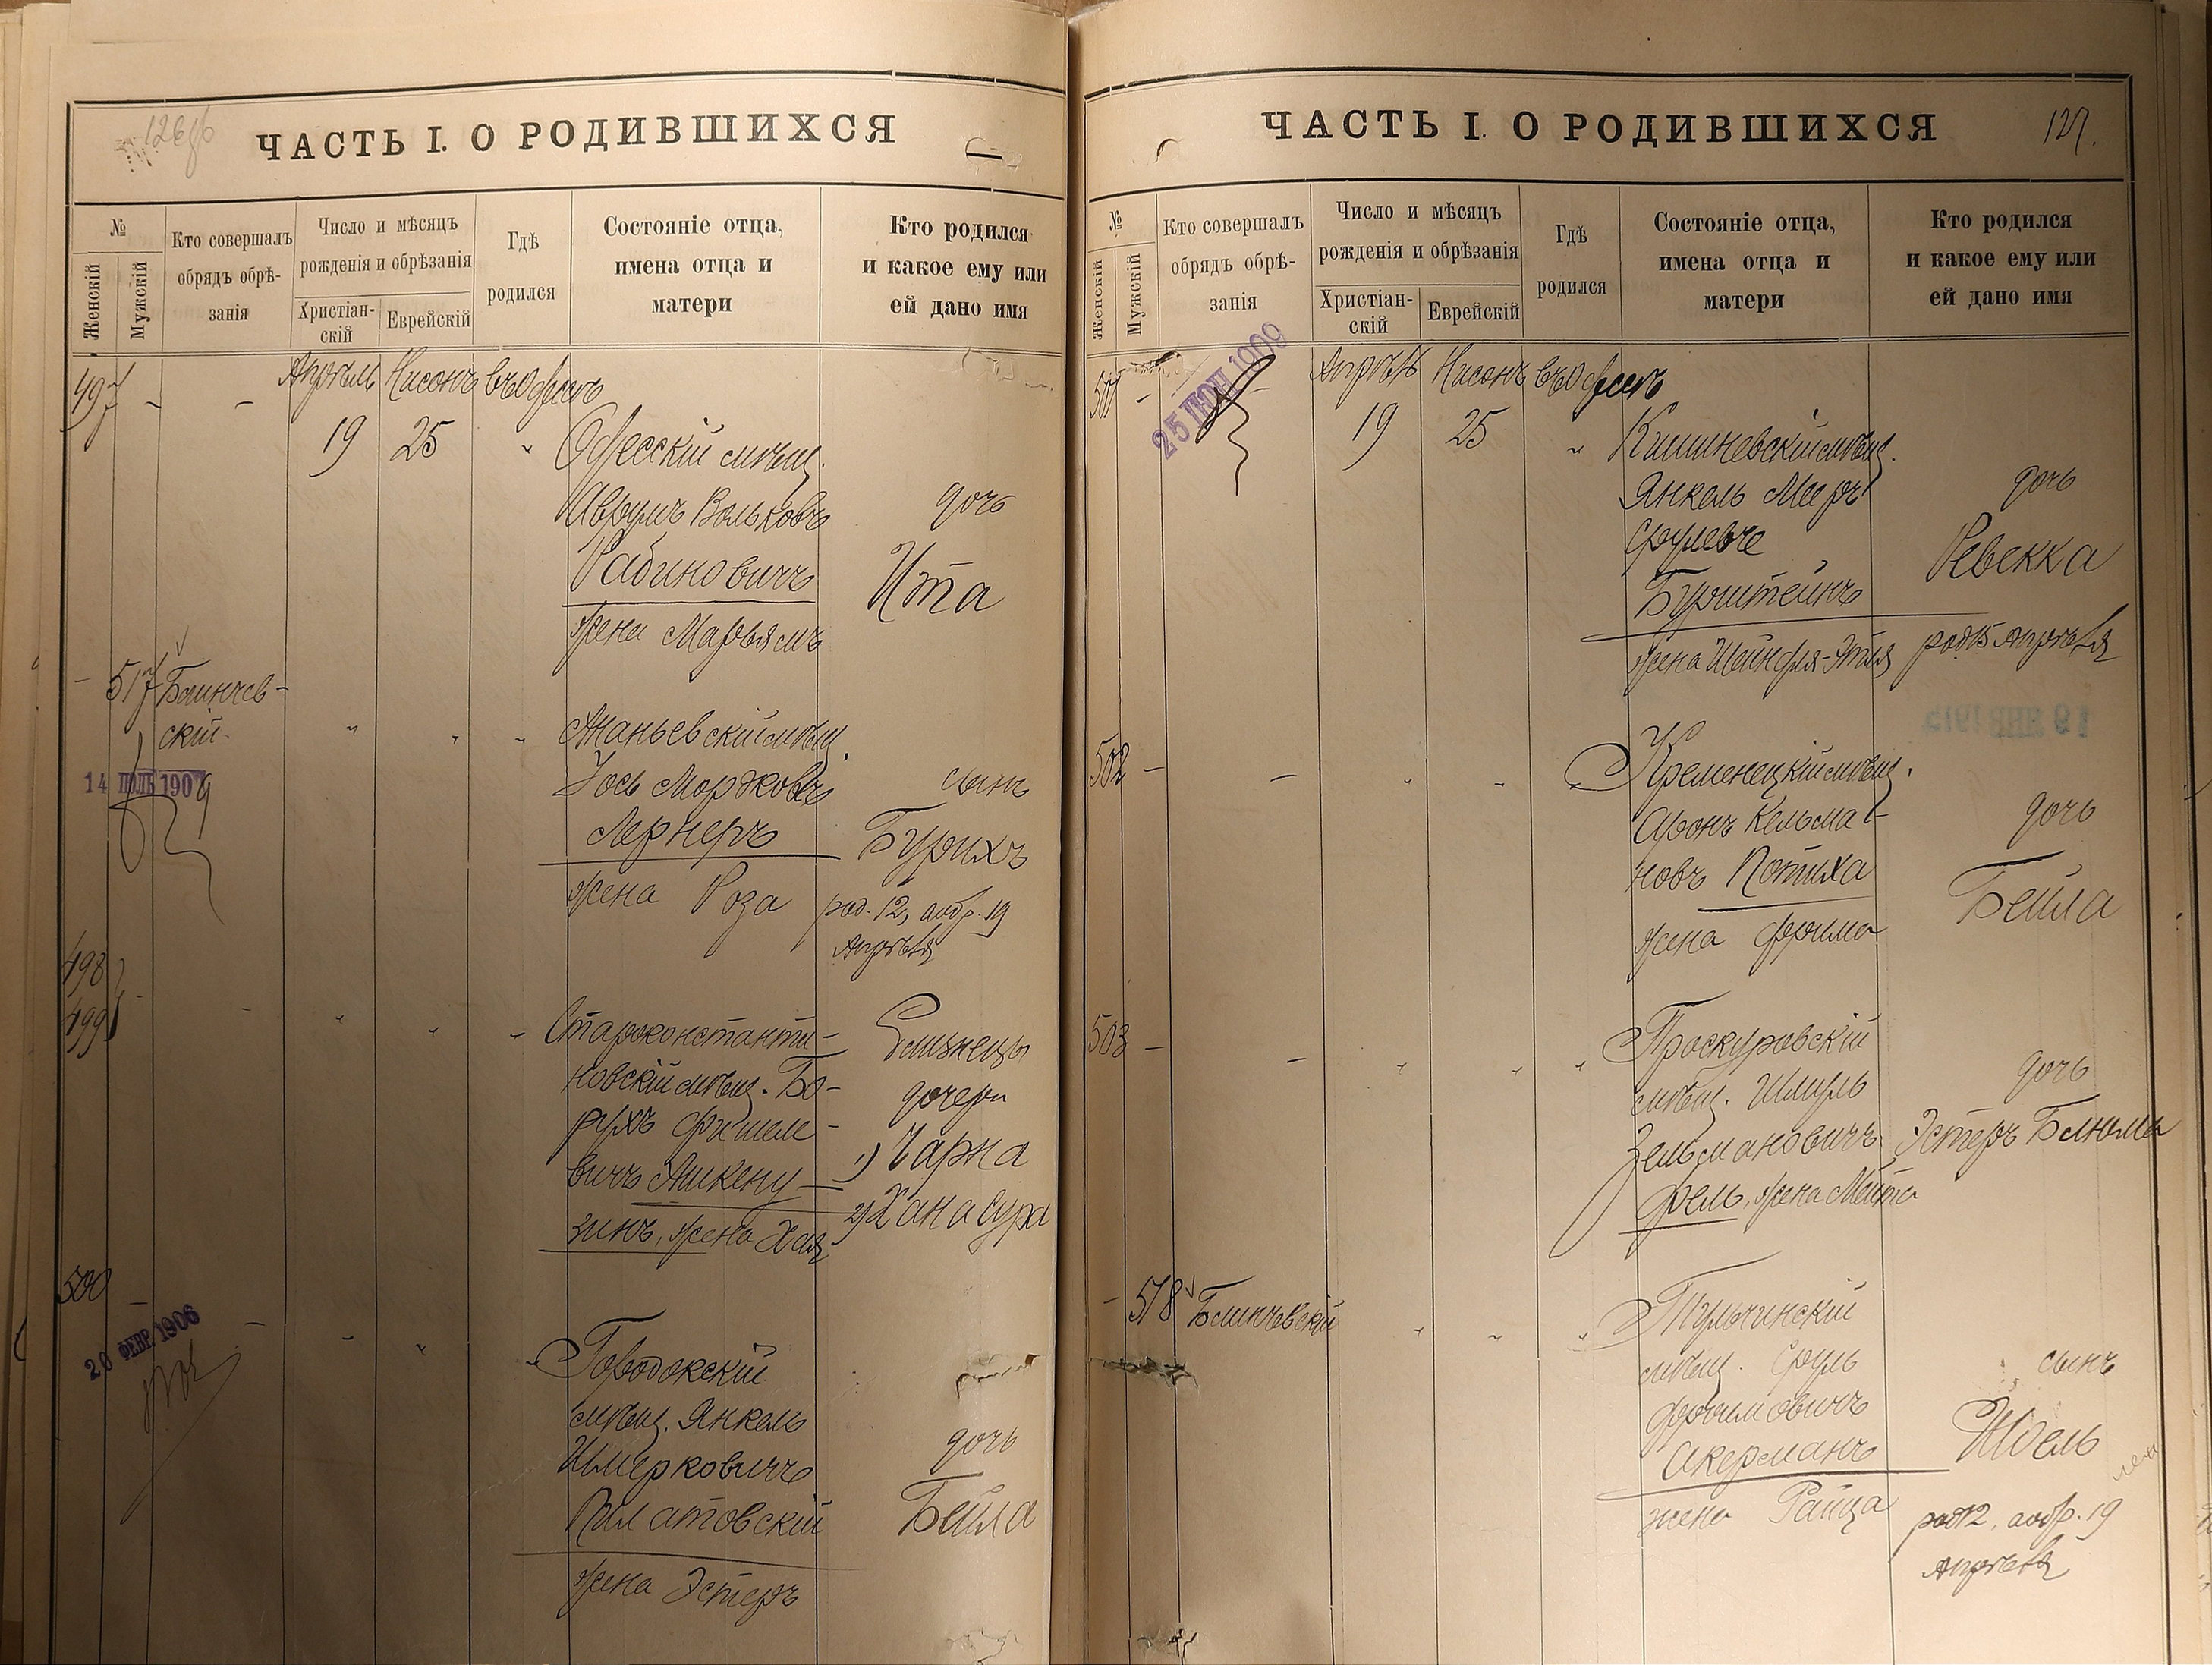 126об
ЧАСТЬ I. О РОДИВШИХСЯ
№
Женскій
Мужскій
Кто совершалъ
обрядъ обрѣ-
занія
Число и мѣсяцъ
рожденія и обрѣзанія
Христіан-
скій
Еврейскій
Гдѣ
родился
Состояніе отца,
имена отца и
матери
Кто родился
и какое ему или
ей дано имя
497 - - Апрѣль Нисонъ въ Одессѣ
19 25 " Одесскій мѣщ.
Аврумъ Вольковъ дочь
Рабиновичъ Ита
жена Марьямъ
- 517 Блинчев-
скій " " " Ананьевскій мѣщ.
14 ІЮЛЬ 1909
Іось Мордковъ сынъ
Лернеръ Бурихъ
жена Роза род. 12, а обр. 19
Апрѣля
498
499 - - " " " Староконстанти- Близнецы
новскій мѣщ. Бо- дочери
рухъ Фишеле- 1) Чарна
вичъ Ашкену- 2) Хана Сура
зинъ, жена Хая
500 - - " " " Городокскій
20 ФЕВР 1906
мѣщ. Янкель дочь
Шмерковичъ Бейла
Пилатовскій
жена Эстеръ
127.
ЧАСТЬ I. О РОДИВШИХСЯ
№
Женскій
Мужскій
Кто совершалъ
обрядъ обрѣ-
занія
Число и мѣсяцъ
рожденія и обрѣзанія
Христіан-
скій
Еврейскій
Гдѣ
родился
Состояніе отца,
имена отца и
матери
Кто родился
и какое ему или
ей дано имя
501 - - Апрѣль Нисонъ въ Одессѣ
25 ІЮН 1909
19 25 " Кишиневскій мѣщ.
Янкель Мееръ дочь
Срулевъ Ревекка
Бурштейнъ
жена Шейндля-Этля род 15 Апрѣля
502 - - " " Кременецкій мѣщ.
Аронъ Кельма- дочь
новъ Потиха Бейла
жена Фрима
503 - - " " " Проскуровскій
мѣщ. Шмуль дочь
Зельмановичъ Эстеръ Блюма
жена
- 518 Блинчевскій " " " Тульчинскій
мѣщ. Сруль сынъ
Фроимовичъ
Акерманъ Іоель
жена Раица род 12, а обр. 19
Апрѣля